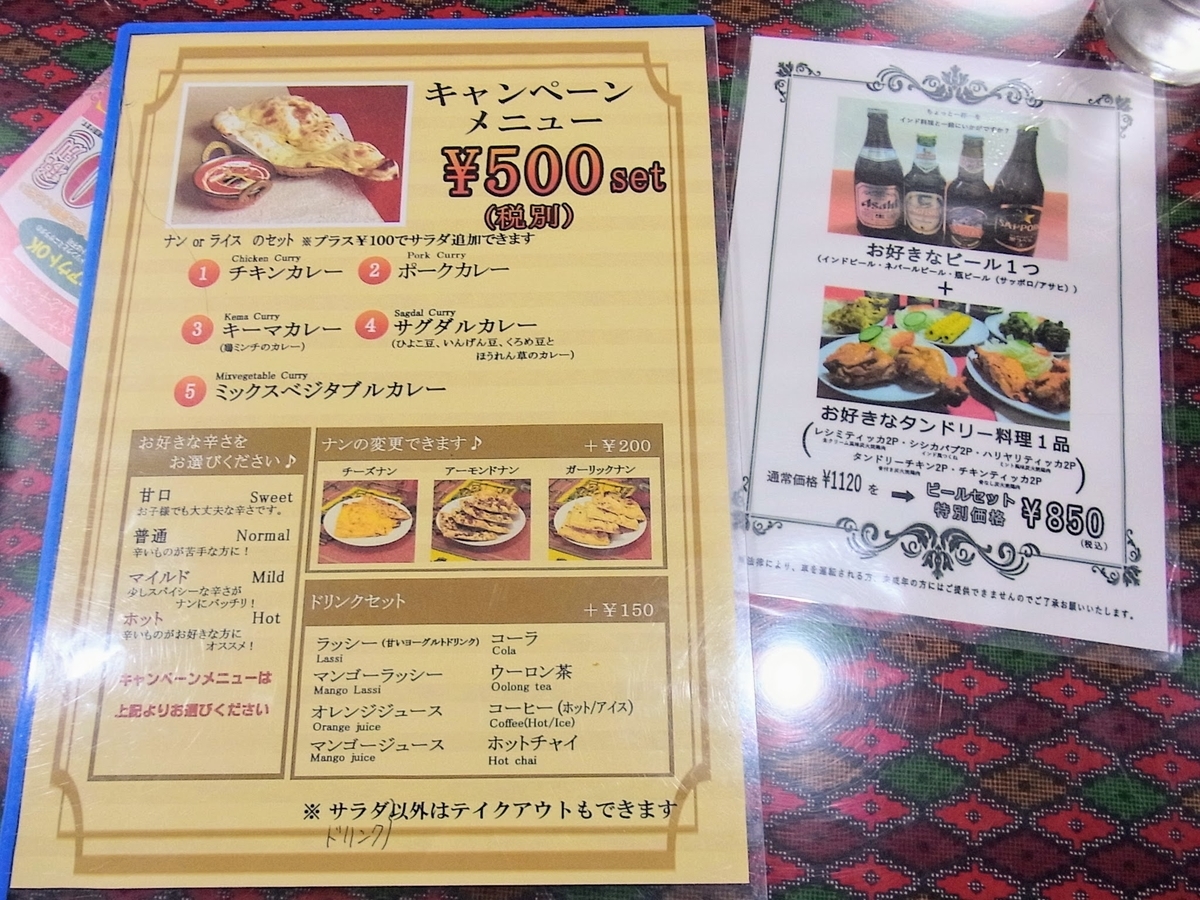 キャンペーン
メニュー
¥500 set
(税別)
ナン or ライス のセット ※プラス¥100でサラダ追加できます
1 Chicken Curry
チキンカレー
2 Pork Curry
ポークカレー
3 Kema Curry
キーマカレー
(鶏ミンチのカレー)
4 Sagdal Curry
サグダルカレー
(ひよこ豆、いんげん豆、くろめ豆と
ほうれん草のカレー)
5 Mixvegetable Curry
ミックスベジタブルカレー
お好きな辛さを
お選びください♪
甘口 Sweet
お子様でも大丈夫な辛さです。
普通 Normal
辛いものが苦手な方に!
マイルド Mild
少しスパイシーな辛さが
ナンにバッチリ!
ホット Hot
辛いものがお好きな方に
オススメ!
キャンペーンメニューは
上記よりお選びください
ナンの変更できます♪ +¥200
チーズナン アーモンドナン ガーリックナン
ドリンクセット +¥150
ラッシー(甘いヨーグルトドリンク)
Lassi
マンゴーラッシー
Mango Lassi
オレンジジュース
Orange juice
マンゴージュース
Mango juice
コーラ
Cola
ウーロン茶
Oolong tea
コーヒー(ホット/アイス)
Coffee(Hot/Ice)
ホットチャイ
Hot chai
※ サラダ以外はテイクアウトもできます
ドリンク
ちょっと一杯…を
インド料理と一緒にいかがですか?
Asahi
SAPPORO
お好きなビール1つ
(インドビール・ネパールビール・瓶ビール(サッポロ/アサヒ))
+
お好きなタンドリー料理1品
(レシミティッカ2P・シシカバブ2P・ハリヤリティッカ2P
タンドリーチキン2P・チキンティッカ2P)
通常価格 ¥1120 を → ビールセット
特別価格 ¥850
(税込)
法律により、車を運転される方、未成年の方にはご提供できませんのでご了承お願いいたします。
アウトOK